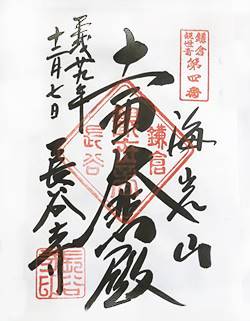 鎌倉
観世音
第四番
海光山
十一面大悲殿
長谷寺
平成廿九年
十二月七日
鎌倉
長谷